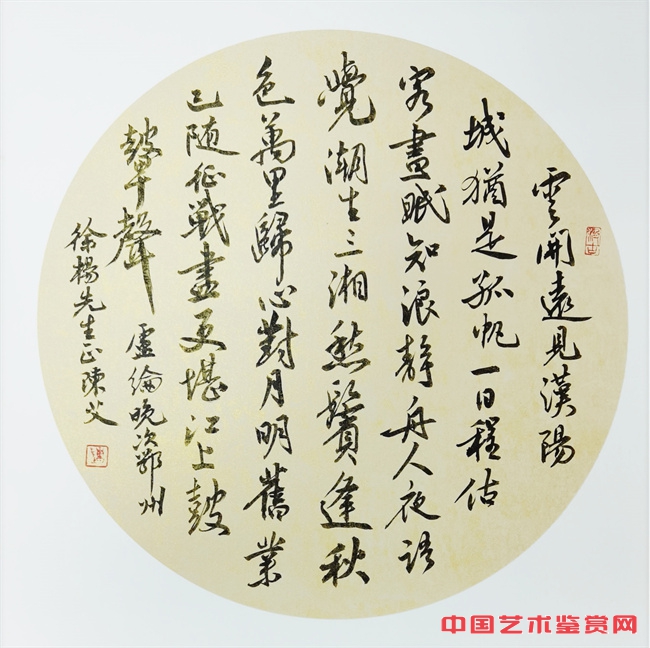 雲開遠見漢陽
城猶是孤帆一日程估
客晝眠知浪靜舟人夜語
覺潮生三湘愁鬢逢秋
色萬里歸心對月明舊業
已随征戰盡更堪江上鼓
鼙聲 盧綸晚次鄂州
徐楊先生正陳父
中国艺术鉴赏网